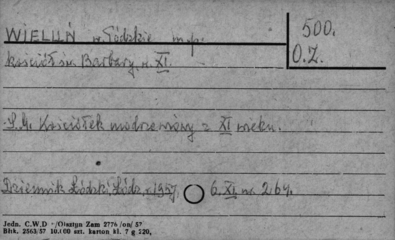 WIELUŃ w. łódzkie m.p. 500.
kościół św. Barbary, w. XI. O.Z.
S.G. Kościółek modrzewiowy z XI wieku.
Dziennik Łódzki, Łódź, r. 1957, 6. XI. nr. 264.
Jedn. C.W.D - /Olsztyn Zam 2776 /on/ 57
Błhk. 2563/57 10.000 szt. karton kl. 7 g 220,